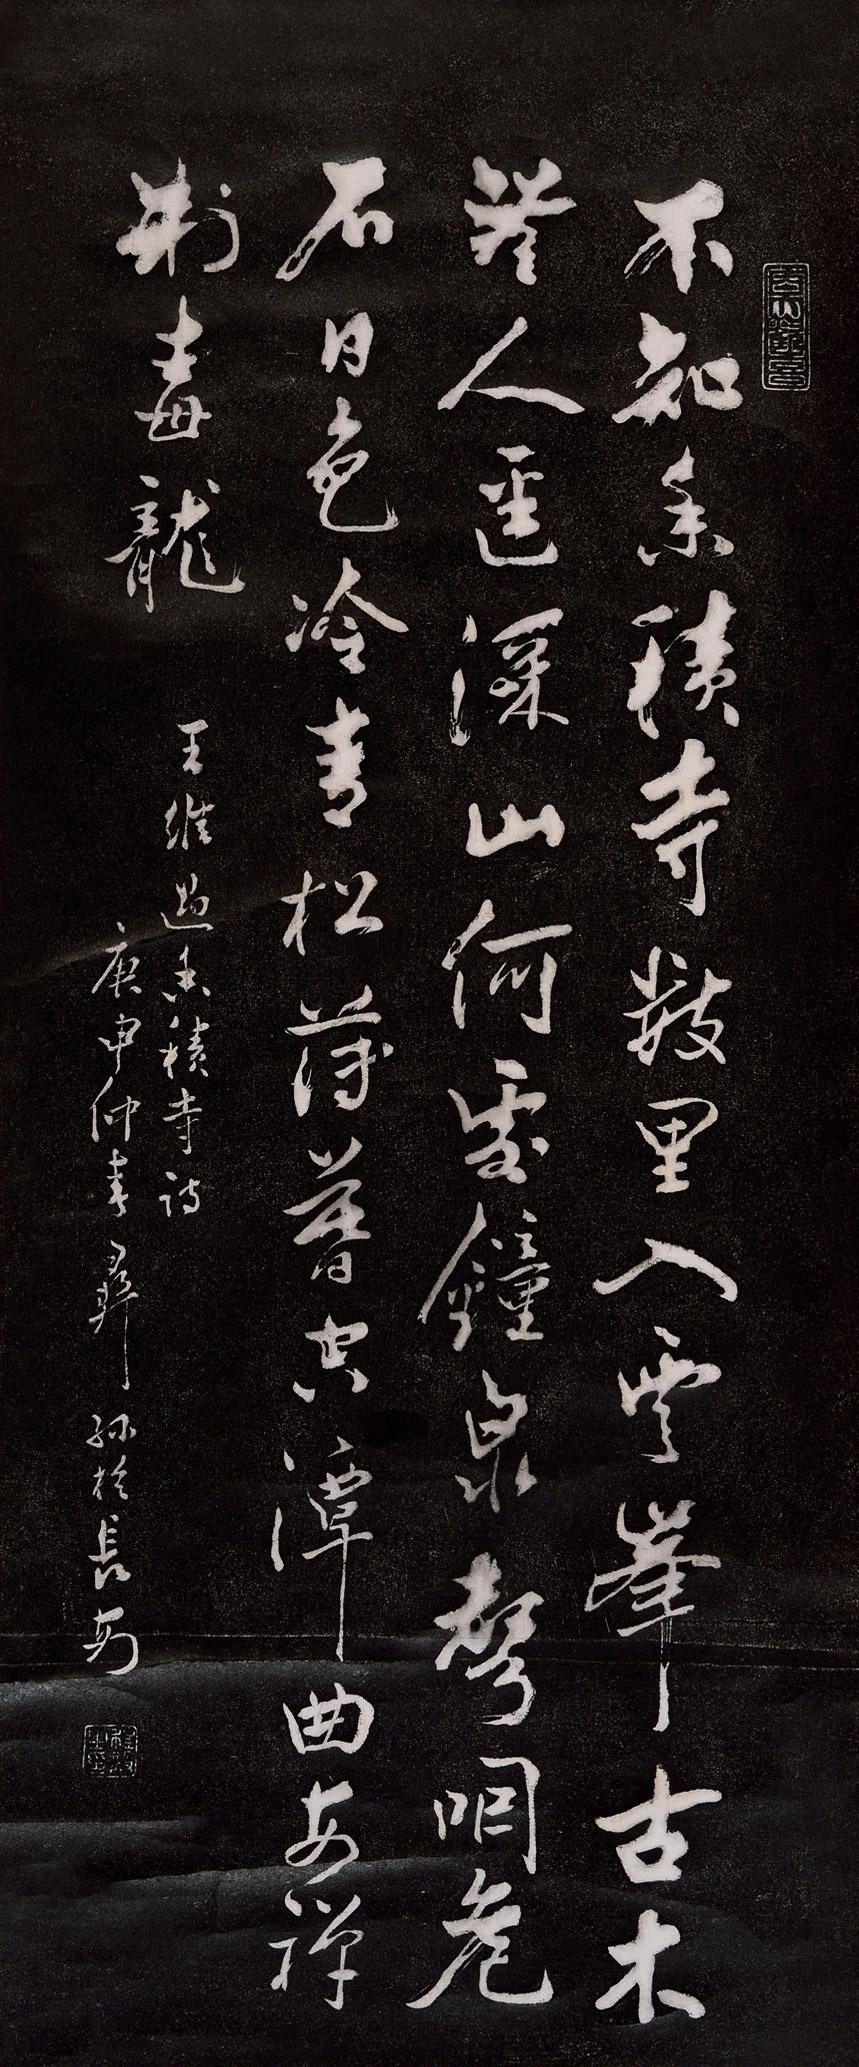 不知香積寺數里入雲峯古木
無人逕深山何處鐘泉聲咽危
石日色冷青松薄暮空潭曲安禪
制毒龍
王維過香積寺詩
庚申仲春彝孫於長安